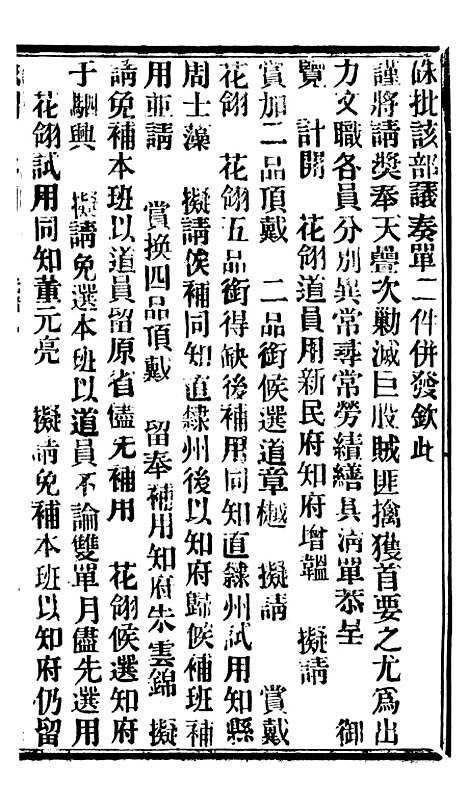 硃批該部議奏單二件併發欽此
謹將請獎奉天疊次勦滅巨股賊匪擒獲首要之尤爲出
力文職各員分別異常尋常勞績繕具淸單恭呈　御
覽　計開　花翎道員用新民府知府增韞　擬請
賞加二品頂戴　二品銜候選道章樾　擬請　賞戴
花翎　花翎五品銜得缺後補用同知直隸州試用知縣
周士藻　擬請俟補同知直隸州後以知府歸候補班補
用並請　賞換四品頂戴　留奉補用知府朱雲錦　擬
請免補本班以道員留原省儘先補用　花翎候選知府
于駟興　擬請免選本班以道員不論雙單月儘先選用
花翎試用同知董元亮　擬請免補本班以知府仍留